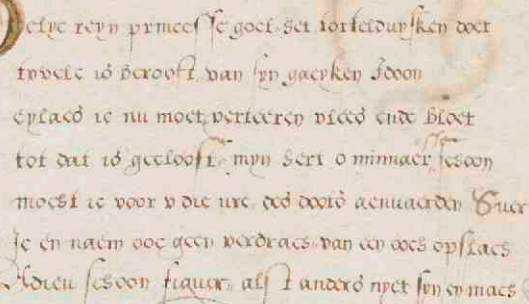 Oelye reyn princesse goet het tortelduyfken doet
twelc is berooft van syn gaeyken Idoon
eylaes ic nu moet verteeren vlees ende bloet
tot dat is gelooft myn hert o minnaer schoon
moest ic voor v die ure des doots aenuaerden suer
Ic en naem ooc geen verdraes van een oochopslaes
Adieu schoon figuer alst anders nyet syn en maes